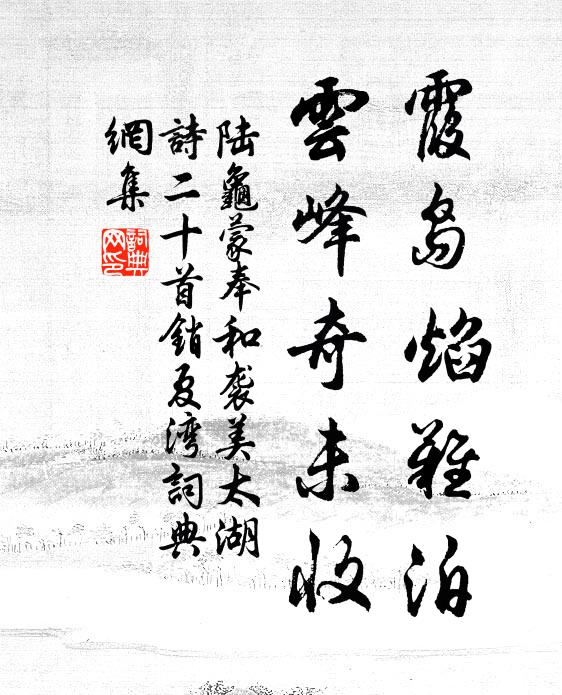 霞島焰難泊
雲峰奇未收
陆龜蒙奉和袭美太湖
詩二十首銷夏湾詞典
網集
詞典網印